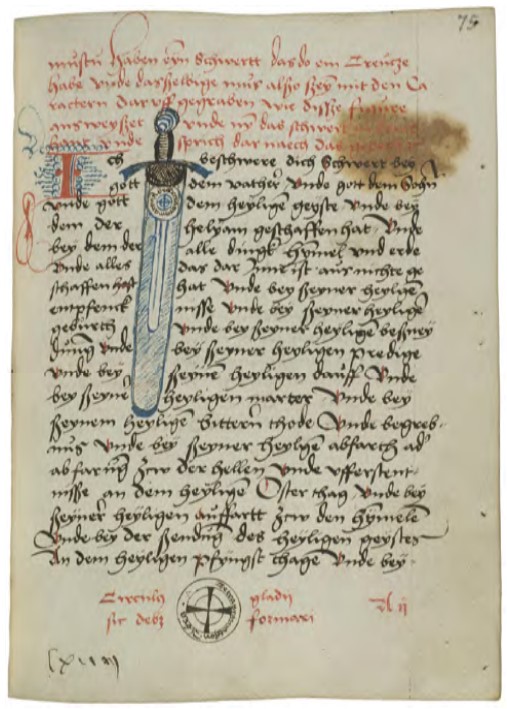 75
mustu haben eyn Schwertt das do ein Creutze
habe vnde dasselbige mus also seyn mit den Ca
ractern dar vff gegraben wie disse figure
ausweyszet vnde nȳ das schwert
vnde sprich dar naech das
Ich beschwere dich Schwert bey
gott dem vather vnde gott dem Sohn
vnde gott dem heyligen geyste vnde bey
dem der helyam geschaffen hat vnde
bey dem der alle dingk hymel vnd erde
vnde alles das dar Innen ist aus nichte ge
schaffen hat vnde bey seyner heyligē
entpfenck nisse vnde bey seyner heyligē
geburth vnde bey seyner heyligē besney
dung vnde bey seyner heyligen predige
vnde bey seynē heyligen tauff vnde
bey seyner heyligen marter vnde bey
seynem heyligē bittern thode vnde begreb
nus vnde bey seyner heylgē abfarth ad
abfarūg zcw der hellen vnde vfferstent
nisse an dem heyligē Oster thag vnde bey
seyner heyligen auffartt zcw den hymelē
vnde bey der sendūg des heyligen geystes
An dem heyligen pfyngst thage vnde bey
Circulus gladii
sic debz formari